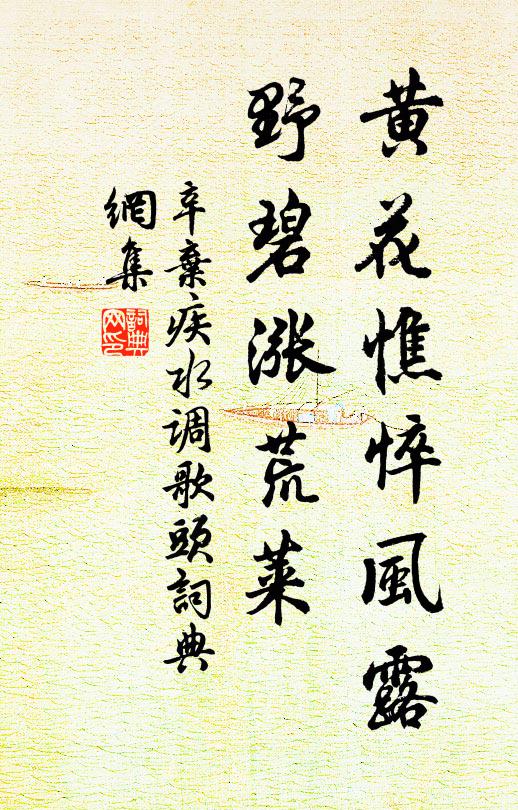 黃花憔悴風露
野碧漲荒萊
辛棄疾水调歌頭詞典
網集
詞典网印